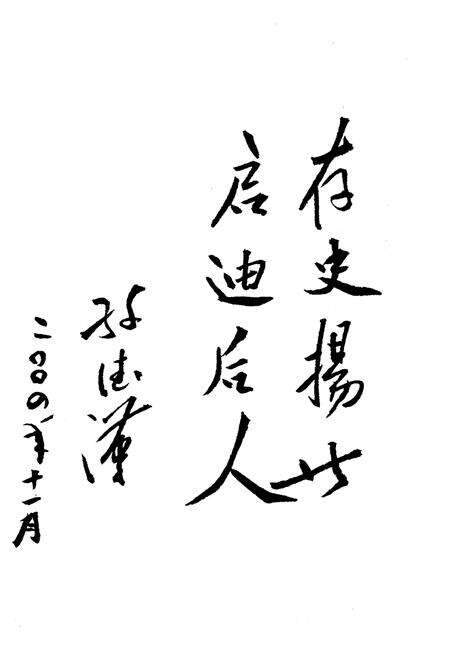 存史揚世
启迪后人
孙德漢
二〇〇四年十一月